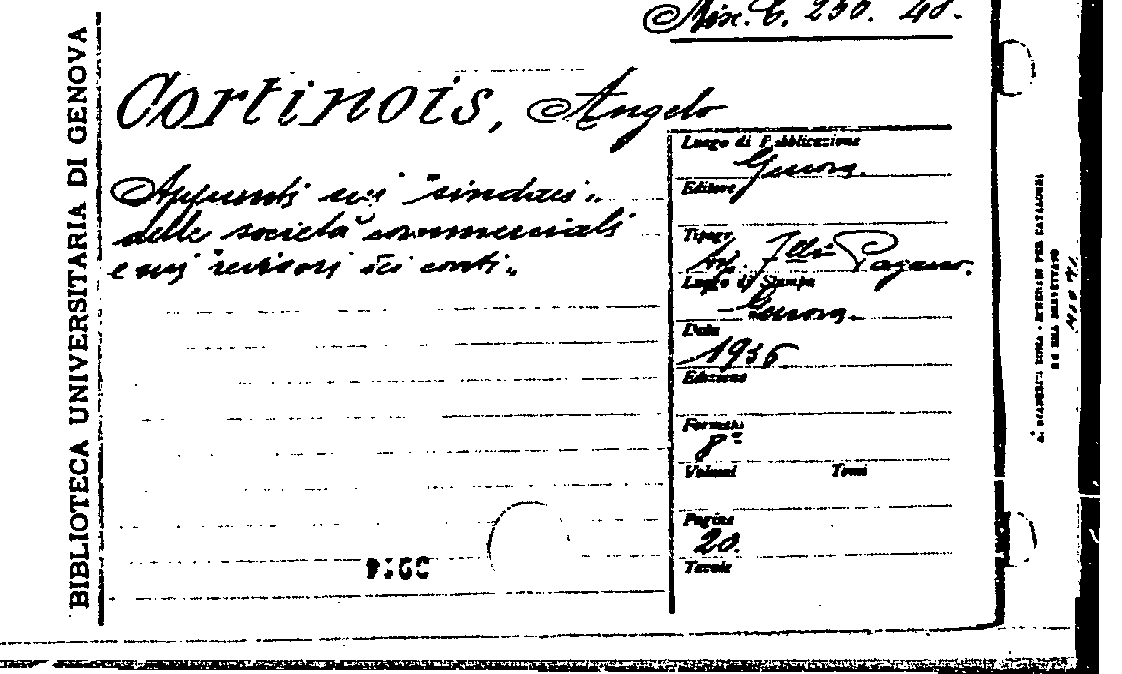 Misc. C. 250. 48.
BIBLIOTECA UNIVERSITARIA DI GENOVA
Cortinois, Angelo
Appunti sui "sindaci"
delle società commerciali
e sui "revisori dei conti"
Luogo di Pubblicazione
Genova.
Editore
Tipogr.
Tip. F.lli Pagano.
Luogo di Stampa
Genova.
Data
1936
Edizione
Formato
8°
Volumi Tomi
Pagine
20.
Tavole